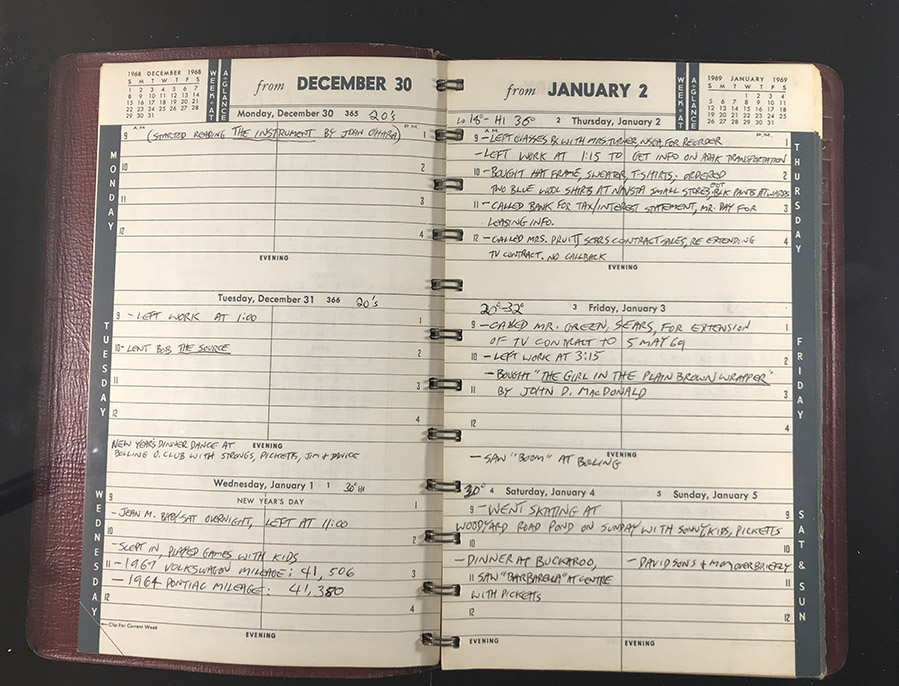 1968 DECEMBER 1968
S M T W T F S
1 2 3 4 5 6 7
8 9 10 11 12 13 14
15 16 17 18 19 20 21
22 23 24 25 26 27 28
29 30 31
WEEK-AT
A-GLANCE
from DECEMBER 30
Monday, December 30 365 20's
A.M. P.M.
(STARTED READING THE INSTRUMENT BY JOHN O'HARA)
9 1
10 2
11 3
12 4
EVENING
MONDAY
Tuesday, December 31 366 20's
9 - LEFT WORK AT 1:00 1
10 - LENT BOB THE SOURCE 2
11 3
12 4
EVENING
NEW YEAR'S DINNER DANCE AT
BOLLING O. CLUB WITH STRONGS, PICKETTS, JIM & JANICE
TUESDAY
Wednesday, January 1 1 30° HI
NEW YEAR'S DAY
9 1
- JEAN M. BABY-SAT OVERNIGHT, LEFT AT 11:00
10 2
- SLEPT IN, PLAYED GAMES WITH KIDS
11 - 1967 VOLKSWAGON MILEAGE: 41,506 3
- 1964 PONTIAC MILEAGE: 41,380
12 4
EVENING
WEDNESDAY
←Clip For Current Week
from JANUARY 2
WEEK-AT
A-GLANCE
1969 JANUARY 1969
S M T W T F S
1 2 3 4
5 6 7 8 9 10 11
12 13 14 15 16 17 18
19 20 21 22 23 24 25
26 27 28 29 30 31
LO 14° - HI 36° 2 Thursday, January 2
A.M. P.M.
9 - LEFT GLASSES RX WITH MRS TURNER, NSGA, FOR REORDER 1
- LEFT WORK AT 1:15 TO GET INFO ON ADAK TRANSPORTATION
10 - BOUGHT HAT FRAME, SWEATER, T-SHIRTS; ORDERED 2
TWO BLUE WOOL SHIRTS AT NAVSTA SMALL STORES, BLK PANTS AT
11 - CALLED BANK FOR TAX/INTEREST STATEMENT, MR. DAY FOR 3
LEASING INFO.
12 - CALLED MRS. PRUITT, SEARS CONTRACT SALES, RE EXTENDING 4
TV CONTRACT. NO CALLBACK
EVENING
THURSDAY
20°-32° 3 Friday, January 3
9 - CALLED MR. GREEN, SEARS, FOR EXTENSION 1
OF TV CONTRACT TO 5 MAY 69
10 - LEFT WORK AT 3:15 2
- BOUGHT "THE GIRL IN THE PLAIN BROWN WRAPPER"
11 BY JOHN D. MACDONALD 3
12 4
EVENING
- SAW "BOOM" AT BOLLING
FRIDAY
30° 4 Saturday, January 4 5 Sunday, January 5
9 - WENT SKATING AT 9
WOODYARD ROAD POND ON SUNDAY WITH SONNY, KIDS, PICKETTS
10 10
- DINNER AT BUCKAROO, - DAVIDSONS & MOM OVER BRIEFLY
11 SAW "BARBARELLA" AT CENTRE 11
WITH PICKETTS
12 12
EVENING EVENING
SAT & SUN